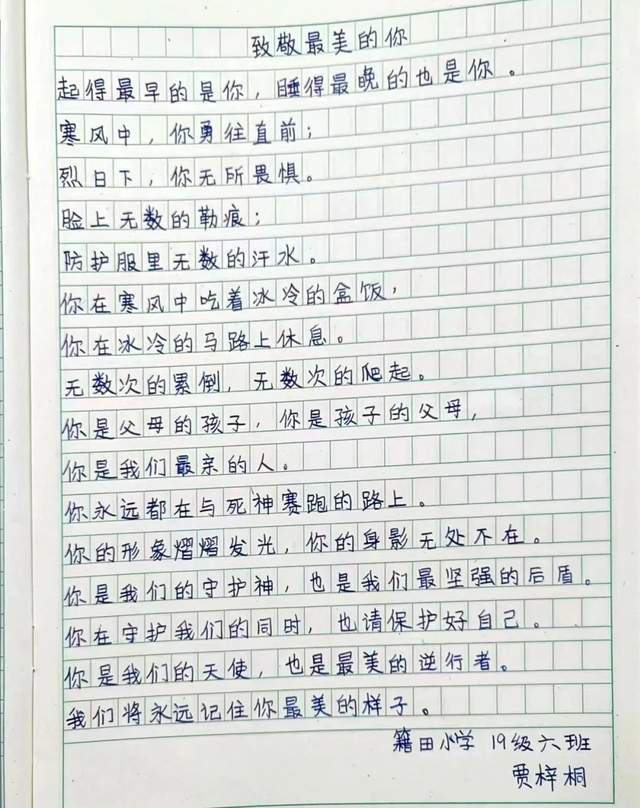 致敬最美的你
起得最早的是你，睡得最晚的也是你。
寒风中，你勇往直前；
烈日下，你无所畏惧。
脸上无数的勒痕；
防护服里无数的汗水。
你在寒风中吃着冰冷的盒饭，
你在冰冷的马路上休息。
无数次的累倒，无数次的爬起。
你是父母的孩子，你是孩子的父母，
你是我们最亲的人。
你永远都在与死神赛跑的路上。
你的形象熠熠发光，你的身影无处不在。
你是我们的守护神，也是我们最坚强的后盾。
你在守护我们的同时，也请保护好自己。
你是我们的天使，也是最美的逆行者。
我们将永远记住你最美的样子。
籍田小学 19级六班
贾梓桐